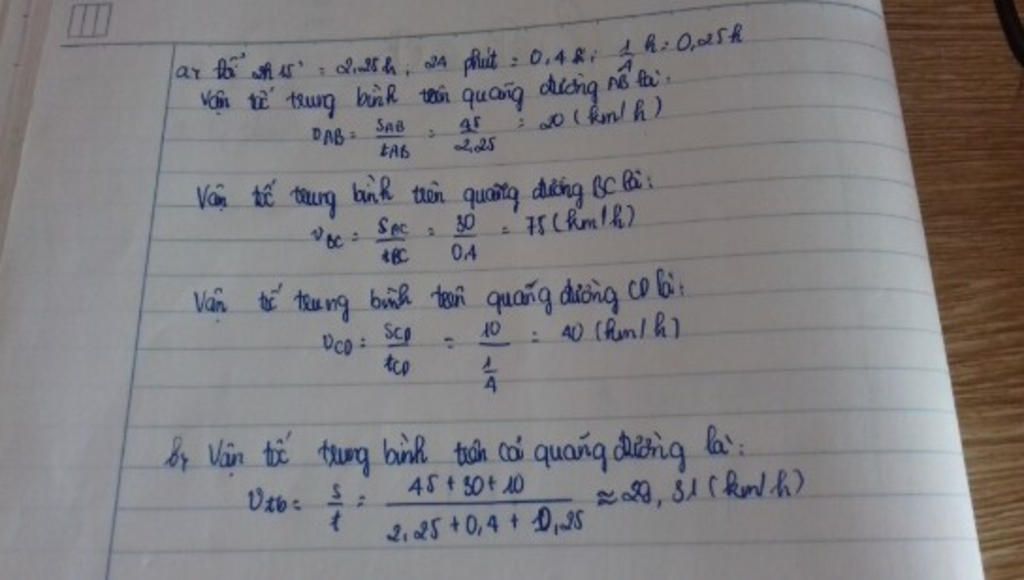 a, Đổi 2h15' = 2,25h; 24 phút = 0,4h; 1/4 h = 0,25h
Vận tốc trung bình trên quãng đường AB là:
vAB = SAB/tAB = 45/2,25 = 20 (km/h)
Vận tốc trung bình trên quãng đường BC là:
vBC = SBC/tBC = 30/0,4 = 75 (km/h)
Vận tốc trung bình trên quãng đường CD là:
vCD = SCD/tCD = 10/(1/4) = 40 (km/h)
b, Vận tốc trung bình trên cả quãng đường là:
vtb = s/t = (45+30+10)/(2,25+0,4+0,25) ≈ 29,31 (km/h)